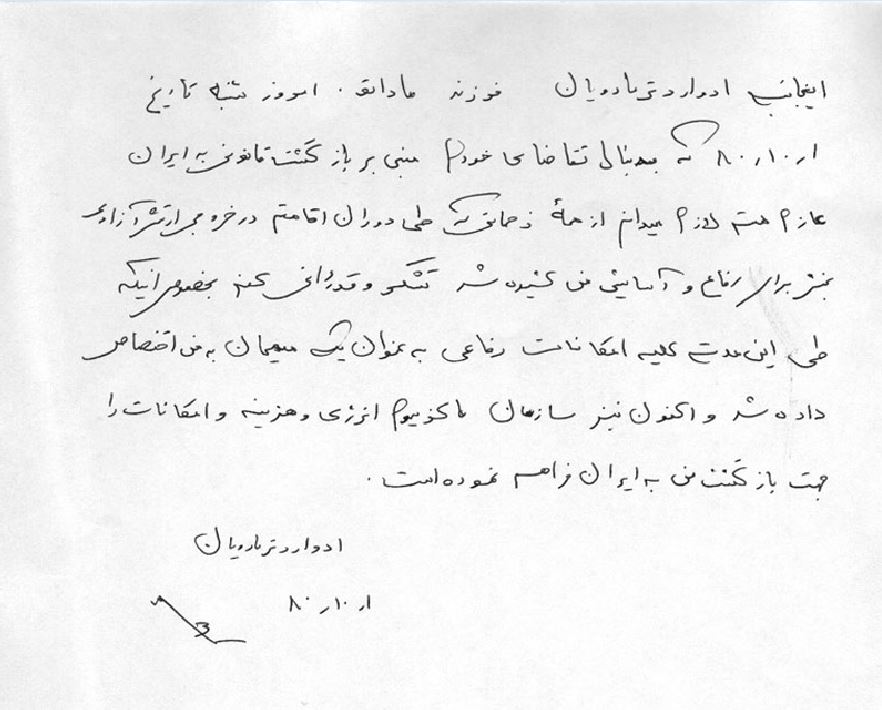 اینجانب ادوارد ترمادویان فرزند مادانو . امروز شنبه تاریخ
۱ر۱۰ر۸۰ که بدنبال تقاضای خودم مبنی بر بازگشت قانونی به ایران
عازم هستم لازم میدانم از همهٔ زحماتی که طی دوران اقامتم در خروجی ارتش آزادی
بخش برای رفاع و آسایش من کشیده شد تشکر و قدردانی کنم بخصوص اینکه
طی این مدت کلیه امکانات رفاهی به عنوان یک میهمان به من اختصاص
داده شد و اکنون نیز سازمان ماکزیموم انرژی و هزینه و امکانات را
جهت بازگشت من به ایران فراهم نموده است .
ادوارد ترمادویان
۱ر۱۰ر۸۰